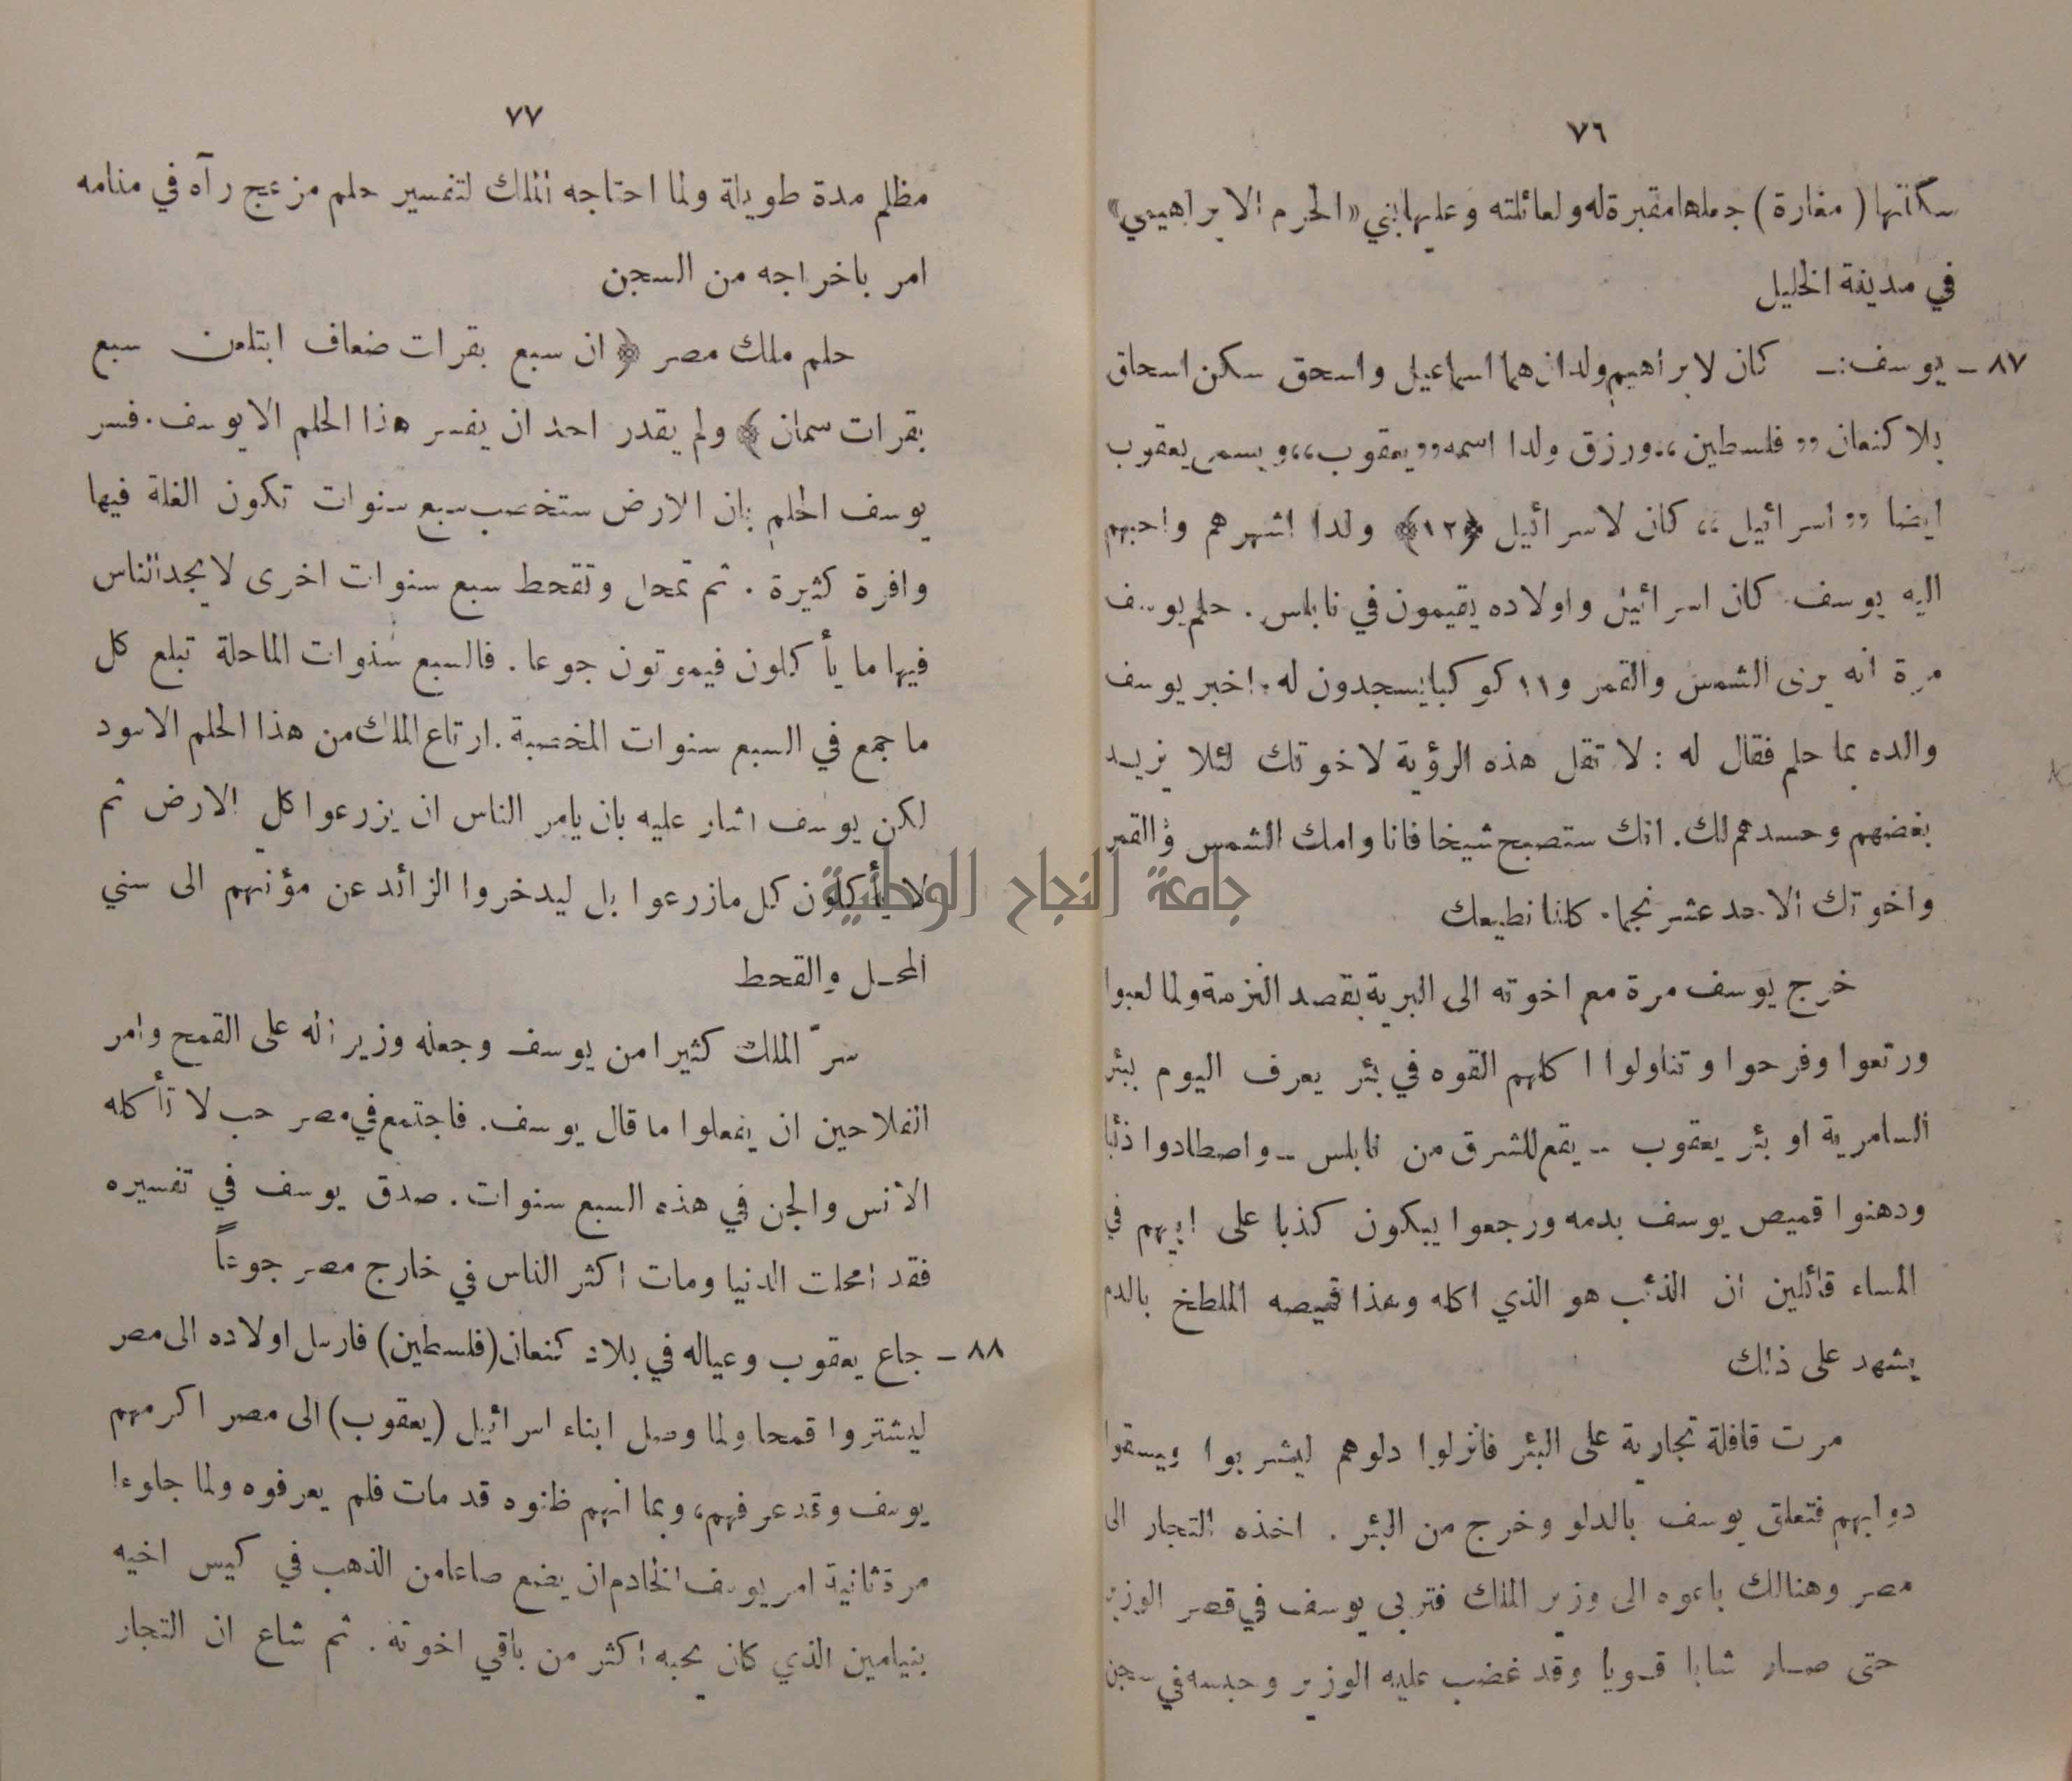 ٧٦
سكانها (مغارة) جعلها مقبرة له ولعائلته وعليها بني «الحرم الابراهيمي»
في مدينة الخليل
٨٧ ـ يوسف :ـ كان لابراهيم ولدان هما اسماعيل واسحق سكن اسحاق
بلا كنعان ,,فلسطين،، ورزق ولدا اسمه ,,يعقوب،، ويسمى يعقوب
ايضا ,,اسرائيل،، كان لاسرائيل ﴿١٢﴾ ولدا اشهرهم واحبهم
اليه يوسف كان اسرائيل واولاده يقيمون في نابلس . حلم يوسف
مرة انه يرى الشمس والقمر و١١ كوكبا يسجدون له . اخبر يوسف
والده بما حلم فقال له : لا تقل هذه الرؤية لاخوتك لئلا يزيد
بغضهم وحسدهم لك . انك ستصبح شيخا فانا وامك الشمس والقمر
واخوتك الاحد عشر نجما . كلنا نطيعك
خرج يوسف مرة مع اخوته الى البرية بقصد النزهة ولما لعبوا
ورتعوا وفرحوا وتناولوا اكلهم القوه في بئر يعرف اليوم ببئر
السامرية او بئر يعقوب ـ يقع للشرق من نابلس ـ واصطادوا ذئبا
ودهنوا قميص يوسف بدمه ورجعوا يبكون كذبا على ابيهم في
المساء قائلين ان الذئب هو الذي اكله وهذا قميصه الملطخ بالدم
يشهد على ذلك
مرت قافلة تجارية على البئر فانزلوا دلوهم ليشربوا ويسقوا
دوابهم فتعلق يوسف بالدلو وخرج من البئر . اخذه التجار الى
مصر وهنالك باعوه الى وزير الملك فتربى يوسف في قصر الوزير
حتى صار شابا قويا وقد غضب عليه الوزير وحبسه في سجن
٧٧
مظلم مدة طويلة ولما احتاجه الملك لتفسير حلم مزعج رآه في منامه
امر باخراجه من السجن
حلم ملك مصر ﴿ان سبع بقرات ضعاف ابتلعن سبع
بقرات سمان﴾ ولم يقدر احد ان يفسر هذا الحلم الا يوسف . فسر
يوسف الحلم بان الارض ستخصب سبع سنوات تكون الغلة فيها
وافرة كثيرة . ثم تمحل وتقحط سبع سنوات اخرى لا يجد الناس
فيها ما يأكلون فيموتون جوعا . فالسبع سنوات الماحلة تبلع كل
ما جمع في السبع سنوات المخصبة . ارتاع الملك من هذا الحلم الاسود
لكن يوسف اشار عليه بان يامر الناس ان يزرعوا كل الارض ثم
لا يأكلون كل مازرعوا بل ليدخروا الزائد عن مؤنهم الى سني
المحل والقحط
سرّ الملك كثيرا من يوسف وجعله وزيرا له على القمح وامر
الفلاحين ان يفعلوا ما قال يوسف . فاجتمع في مصر حب لا تأكله
الانس والجن في هذه السبع سنوات . صدق يوسف في تفسيره
فقد امحلت الدنيا ومات اكثر الناس في خارج مصر جوعاً
٨٨ ـ جاع يعقوب وعياله في بلاد كنعان (فلسطين) فارسل اولاده الى مصر
ليشتروا قمحا ولما وصل ابناء اسرائيل (يعقوب) الى مصر اكرمهم
يوسف وقد عرفهم، وبما انهم ظنوه قد مات فلم يعرفوه ولما جاوءا
مرة ثانية امر يوسف الخادم ان يضع صاعا من الذهب في كيس اخيه
بنيامين الذي كان يحبه اكثر من باقي اخوته . ثم شاع ان التجار
جامعة النجاح الوطنية